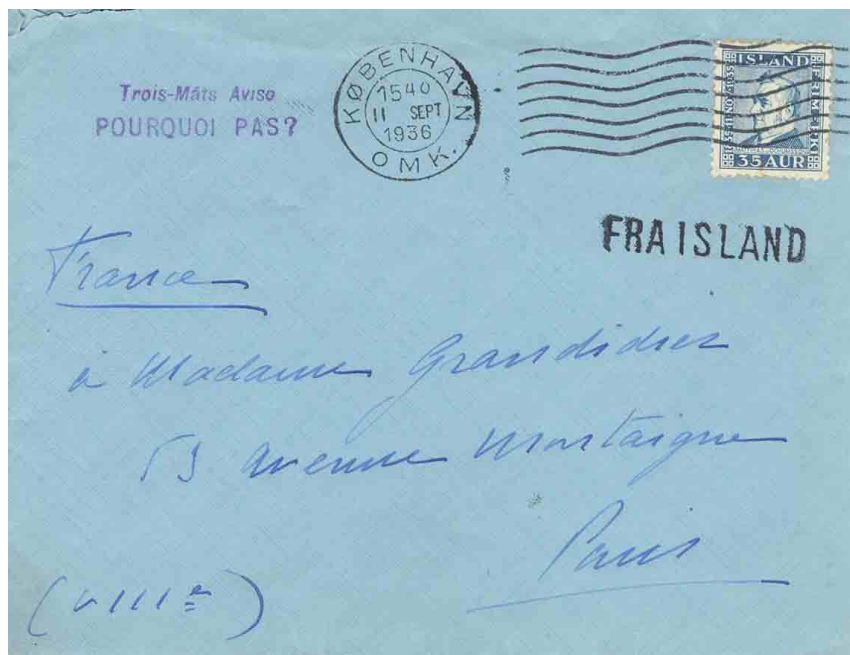 Trois-Mâts Aviso
POURQUOI PAS?
KØBENHAVN
1540
11 SEPT
1936
OMK.
ISLAND
FRÍMERKI
35 AUR
FRA ISLAND
France
à Madame Grandidier
53 avenue Montaigne
Paris
(VIIIe)